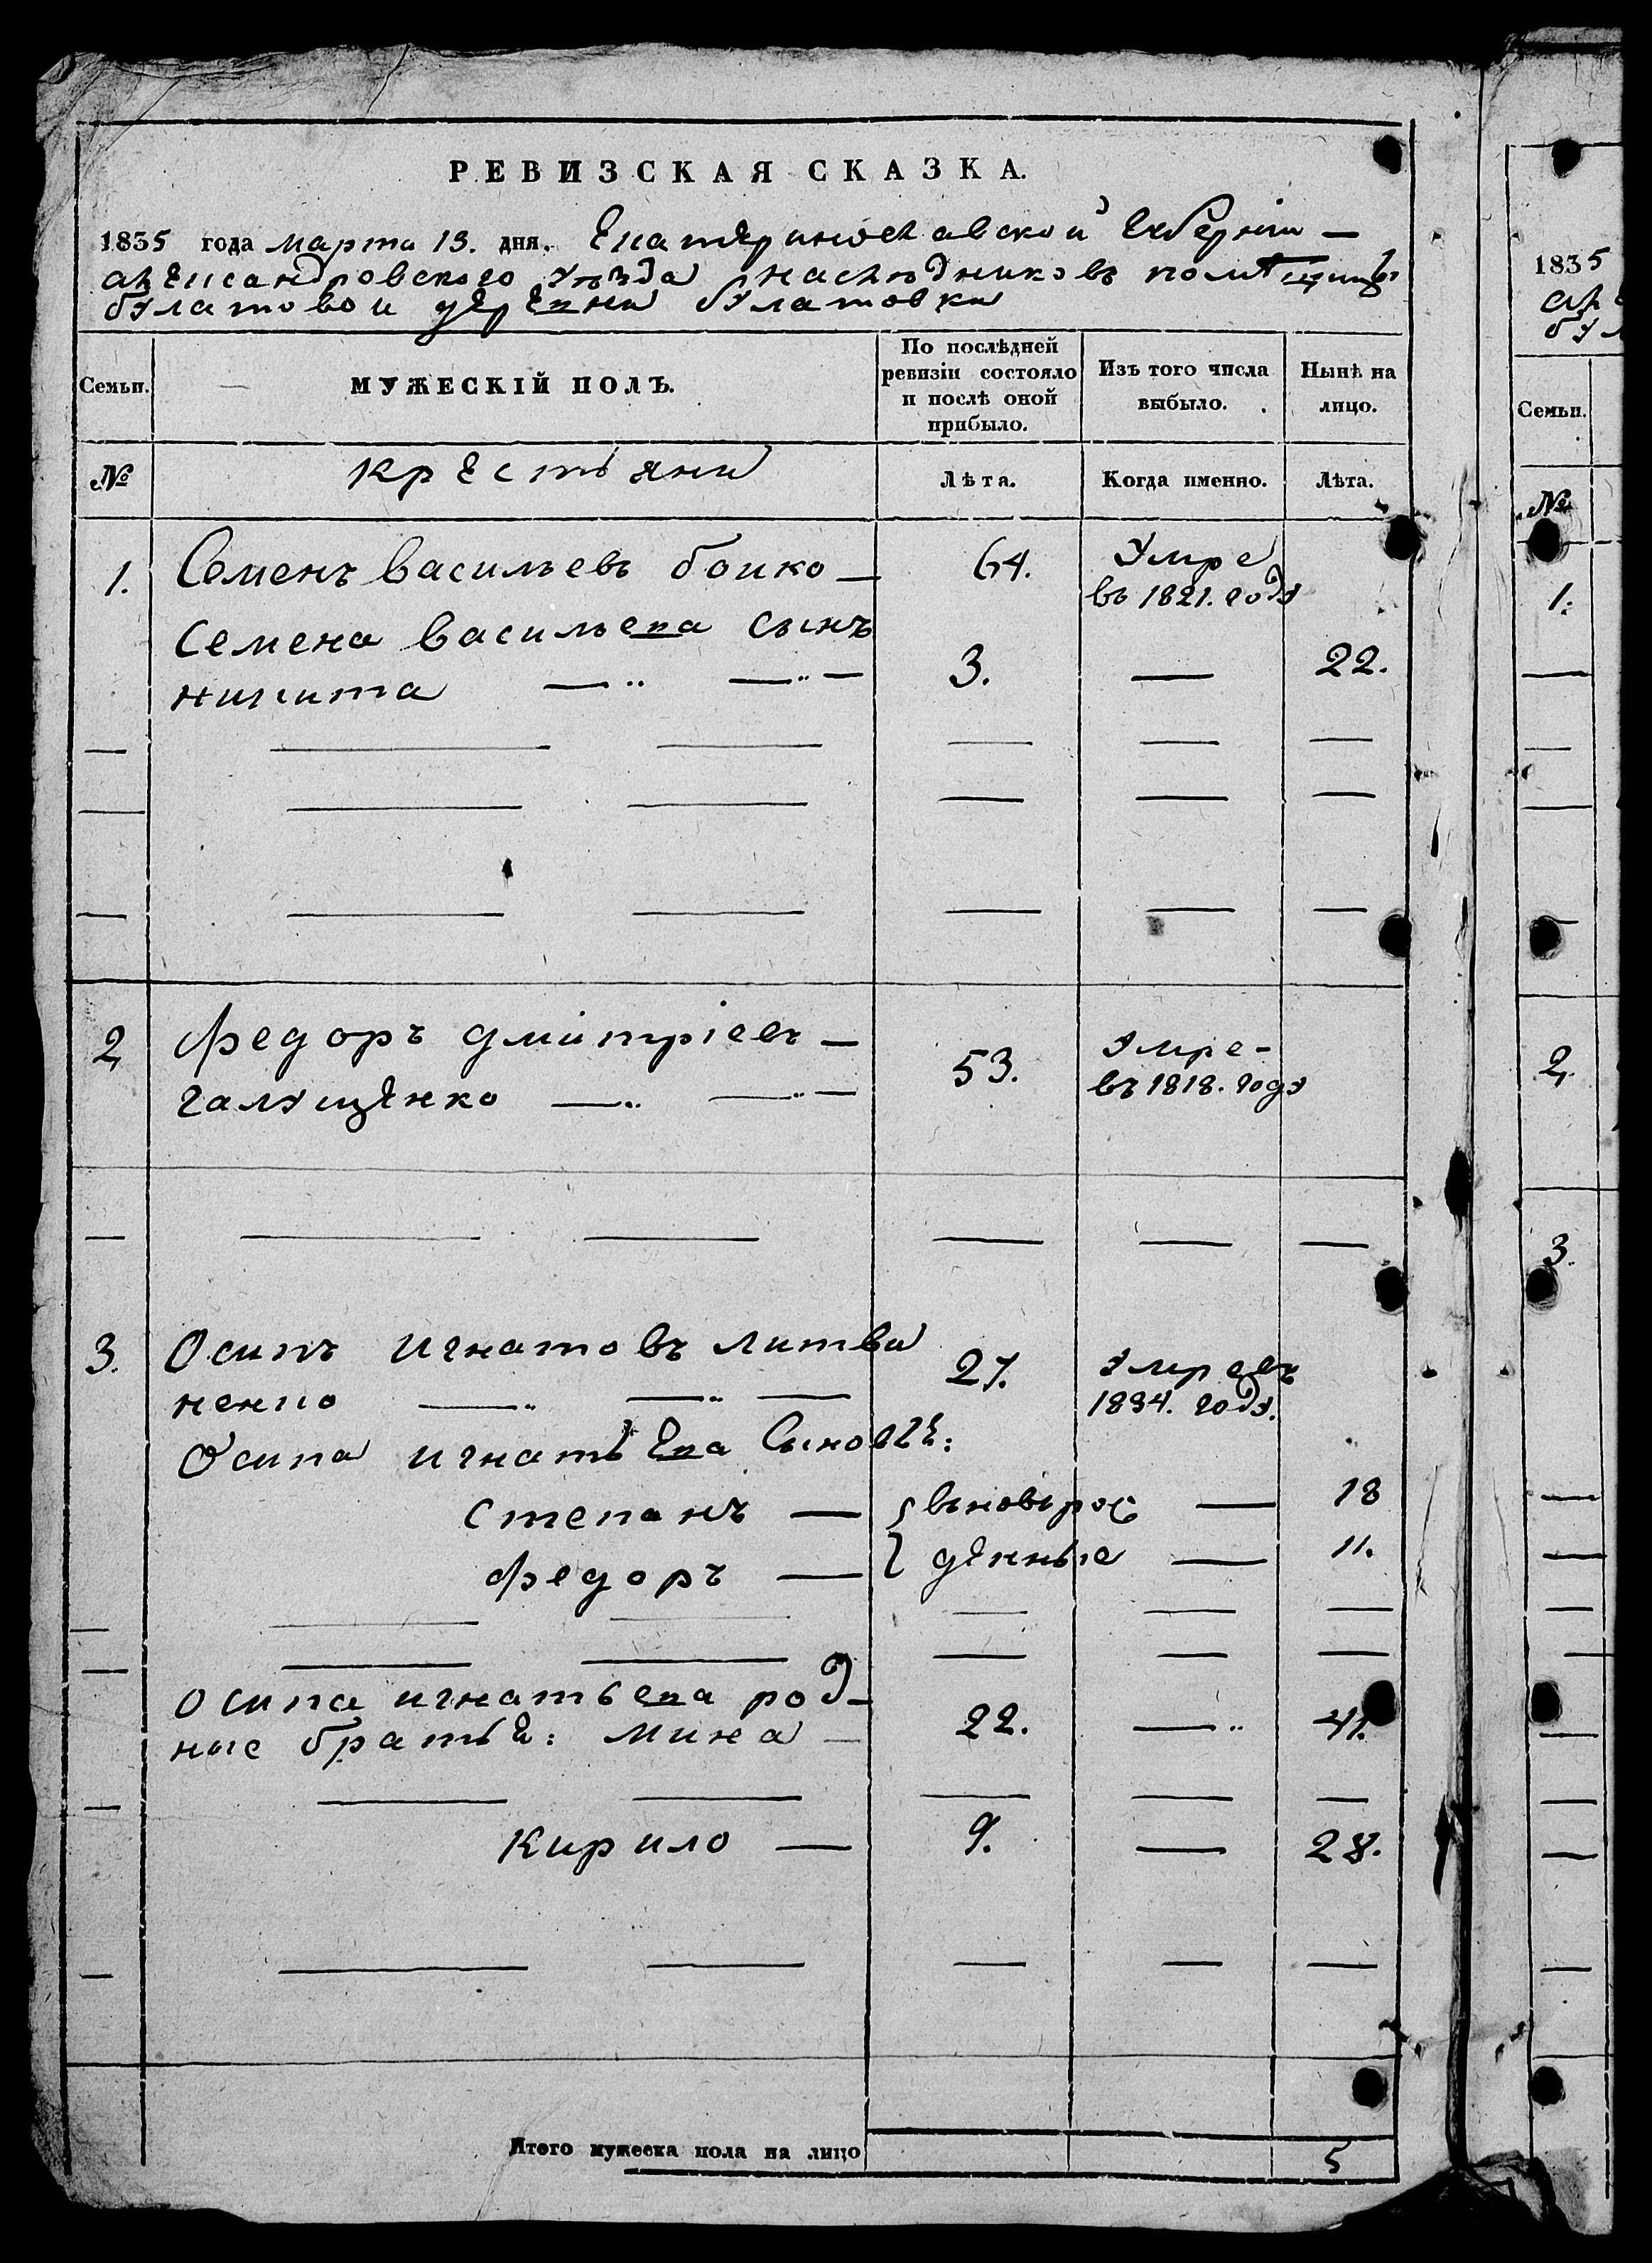 РЕВИЗСКАЯ СКАЗКА.
1835 года марта 13. дня. Екатеринославской Губерніи —
Александровского уѣзда наслѣдниковъ помѣщицы
булатовои деревни булатовки
Семьи. МУЖЕСКІЙ ПОЛЪ. По послѣдней ревизіи состояло и послѣ оной прибыло. Изъ того числа выбыло. Нынѣ на лицо.
№ крестьяни Лѣта. Когда именно. Лѣта.
1. Семенъ васильевъ боико — 64. Умре
въ 1821. году
Семена васильева сынъ
никита 3. — 22.
2 федоръ дмитріевъ — 53. Умре-
галущенко въ 1818. году
3. Осипъ игнатовъ литви 27. Умре въ
ненко 1834. году.
Осипа игнатьева Сыновьѣ:
степанъ — вновьрож — 18
федоръ — денные — 11.
осипа игнатьева род-
ные братьѣ: мина 22. — 41.
кирило — 9. — 28.
Итого мужеска пола на лицо 5
1835
Семьи.
№
1.
2.
3.